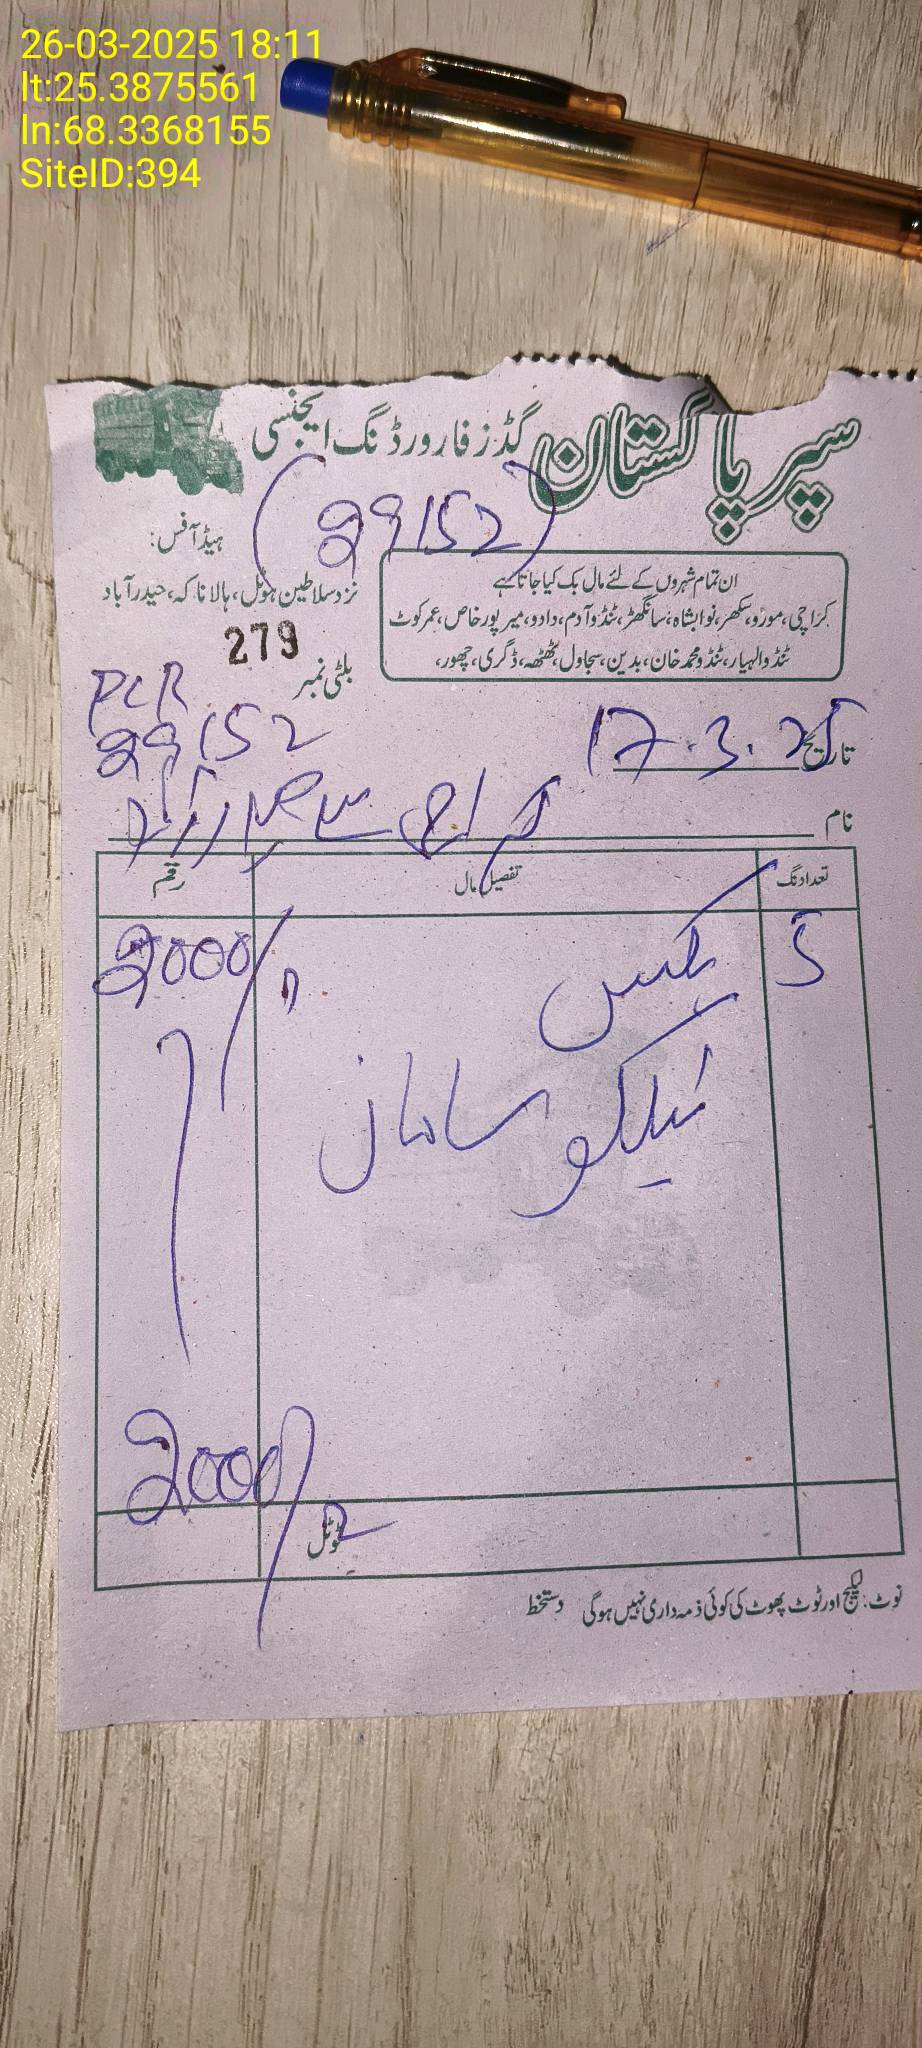 26-03-2025 18:11
lt:25.3875561
ln:68.3368155
SiteID:394
سپر پاکستان گڈز فارورڈنگ ایجنسی
(29152)
ہیڈ آفس:
نزد سلاطین ہوٹل، ہالا ناکہ، حیدرآباد
ان تمام شہروں کے لئے مال بک کیا جاتا ہے
کراچی، مورو، سکھر، نوابشاہ، سانگھڑ، ٹنڈوآدم، دادو، میرپورخاص، عمرکوٹ
ٹنڈوالہیار، ٹنڈومحمدخان، بدین، سجاول، ٹھٹھہ، ڈگری، جھور،
بلٹی نمبر 279
PCR
29152
تاریخ 17.3.25
نام کراچی سے حیدرآباد
تعداد نگ تفصیل مال رقم
5 بکس 2000/
ٹیلکو سامان
ٹوٹل 2000/
نوٹ: لیکیج اور ٹوٹ پھوٹ کی کوئی ذمہ داری نہیں ہوگی دستخط